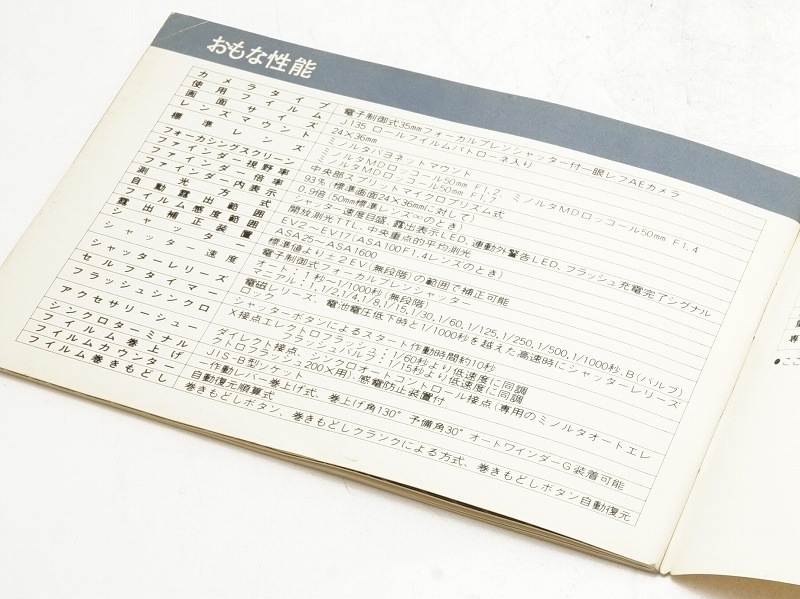 おもな性能
カメラタイプ 電子制御式35mmフォーカルプレンシャッター付一眼レフAEカメラ
使用フィルム J135 ロールフイルムパトローネ入り
画面サイズ 24×36mm
レンズマウント ミノルタバヨネットマウント
標準レンズ ミノルタMDロッコール50mm F1.2、ミノルタMDロッコール50mm F1.4
ミノルタMDロッコール50mm F1.7
フォーカシングスクリーン 中央部スプリットマイクロプリズム式
ファインダー視野率 93%(標準画面24×36mmに対して)
ファインダー倍率 0.9倍(50mm標準レンズ∞のとき)
ファインダー内表示 シャッター速度目盛、露出表示LED、連動外警告LED、フラッシュ充電完了シグナル
測光方式 開放測光TTL、中央重点的平均測光
自動露出範囲 EV2〜EV17(ASA100F1.4レンズのとき)
フイルム感度範囲 ASA25〜ASA1600
露出補正装置 標準値より±2EV(無段階)の範囲で補正可能
シャッター 電子制御式フォーカルプレンシャッター
シャッター速度 オート:1秒〜1/1000秒(無段階)
マニアル:1,1/2,1/4,1/8,1/15,1/30,1/60,1/125,1/250,1/500,1/1000秒、B(バルブ)
シャッターレリーズ 電磁レリーズ、電池電圧低下時と1/1000秒を越えた高速時にシャッターレリーズ
ロック
セルフタイマー シャッターボタンによるスタート作動時間約10秒
フラッシュシンクロ X接点エレクトロフラッシュ:1/60秒より低速度に同調
フラッシュバルブ:1/15秒より低速度に同調
アクセサリーシュー ダイレクト接点、シンクロオートコントロール接点(専用のミノルタオートエレ
クトロフラッシュ200X用)、感電防止装置付
シンクロターミナル JIS-B型ソケット
フイルム巻上げ 作動レバー巻上げ式、巻上げ角130° 予備角30° オートワインダーG装着可能
フイルムカウンター 自動復元順算式
フイルム巻きもどし 巻きもどしボタン、巻きもどしクランクによる方式、巻きもどしボタン自動復元
専
●ここ